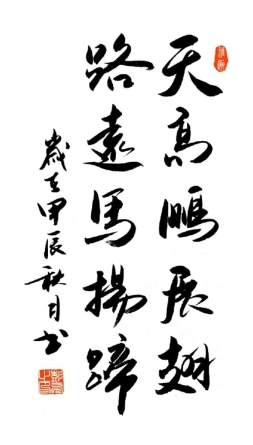 天高鵬展翅
路遠馬揚蹄
歲在甲辰秋月书